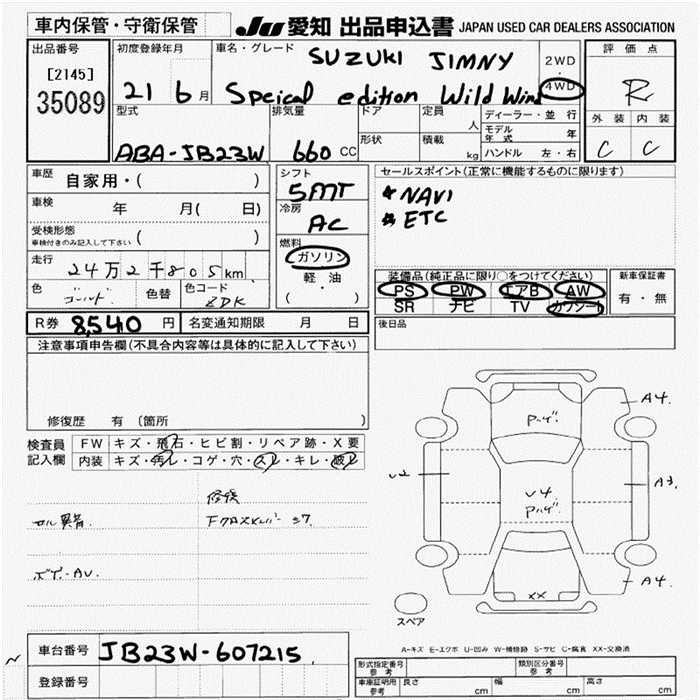 車内保管・守衛保管 JU 愛知 出品申込書 JAPAN USED CAR DEALERS ASSOCIATION
出品番号 初度登録年月 車名・グレード SUZUKI JIMNY 2WD 評価点
[2145] ・
35089 21 6月 Speical edition Wild Wind 4WD R
型式 排気量 ドア 定員 ディーラー・並行 外装 内装
人 モデル年式 年
ABA-JB23W 660 CC 形状 積載 kg ハンドル 左・右 C C
車歴 自家用・( ) シフト セールスポイント(正常に機能するものに限ります)
5MT * NAVI
車検 年 月( 日) 冷房 * ETC
AC
受検形態 ( )
車検付きのみ記入して下さい 燃料
走行 24万2千805km ガソリン 装備品(純正品に限り○をつけてください) 新車保証書
軽・油 PS PW エアB AW 有・無
色 ゴールド 色替 色コード ZDK ( ) SR ナビ TV カワシート
R券 8,540 円 名変通知期限 月 日 後日品
注意事項申告欄(不具合内容等は具体的に記入して下さい)
修復歴 有(箇所 )
検査員 FW キズ・飛石・ヒビ割・リペア跡・X要
記入欄 内装 キズ・汚レ・コゲ・穴・スレ・キレ・破レ
A4.
Pハゲ.
U2 A3.
U4
Pハゲ.
修復
セル異音.
ボデー・AU.
A4.
XX
スペア
A-キズ E-エクボ U-凹み W-補修跡 S-サビ C-腐食 XX-交換済
車台番号 JB23W-607215.
登録番号
形式指定番号 参考 類別区分番号 参考
車庫証明用 参考 長さ cm 幅 cm 高さ cm